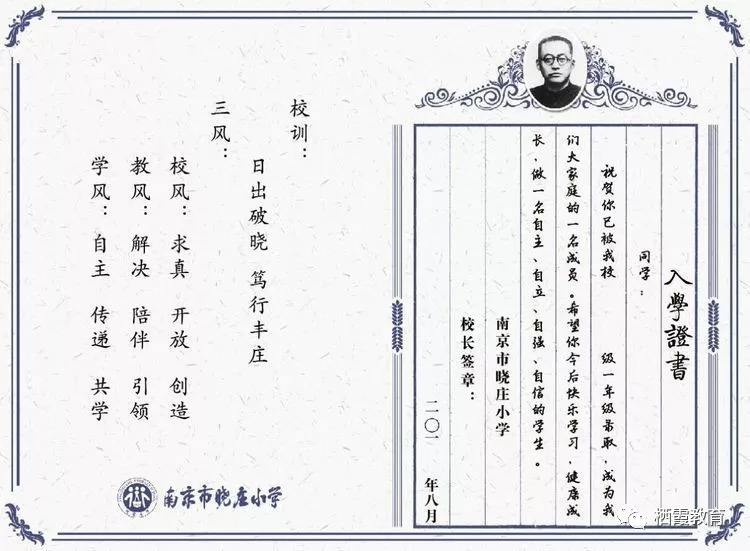 入學證書
同学：
祝贺你已被我校 级一年级录取，成为我
们大家庭的一名成员。希望你今后快乐学习，健康成
长，做一名自主、自立、自强、自信的学生。
南京市晓庄小学
校长签章：
二〇一 年八月
校训：
日出破晓 笃行丰庄
三风：
校风：求真 开放 创造
教风：解决 陪伴 引领
学风：自主 传递 共学
南京市晓庄小学
栖霞教育